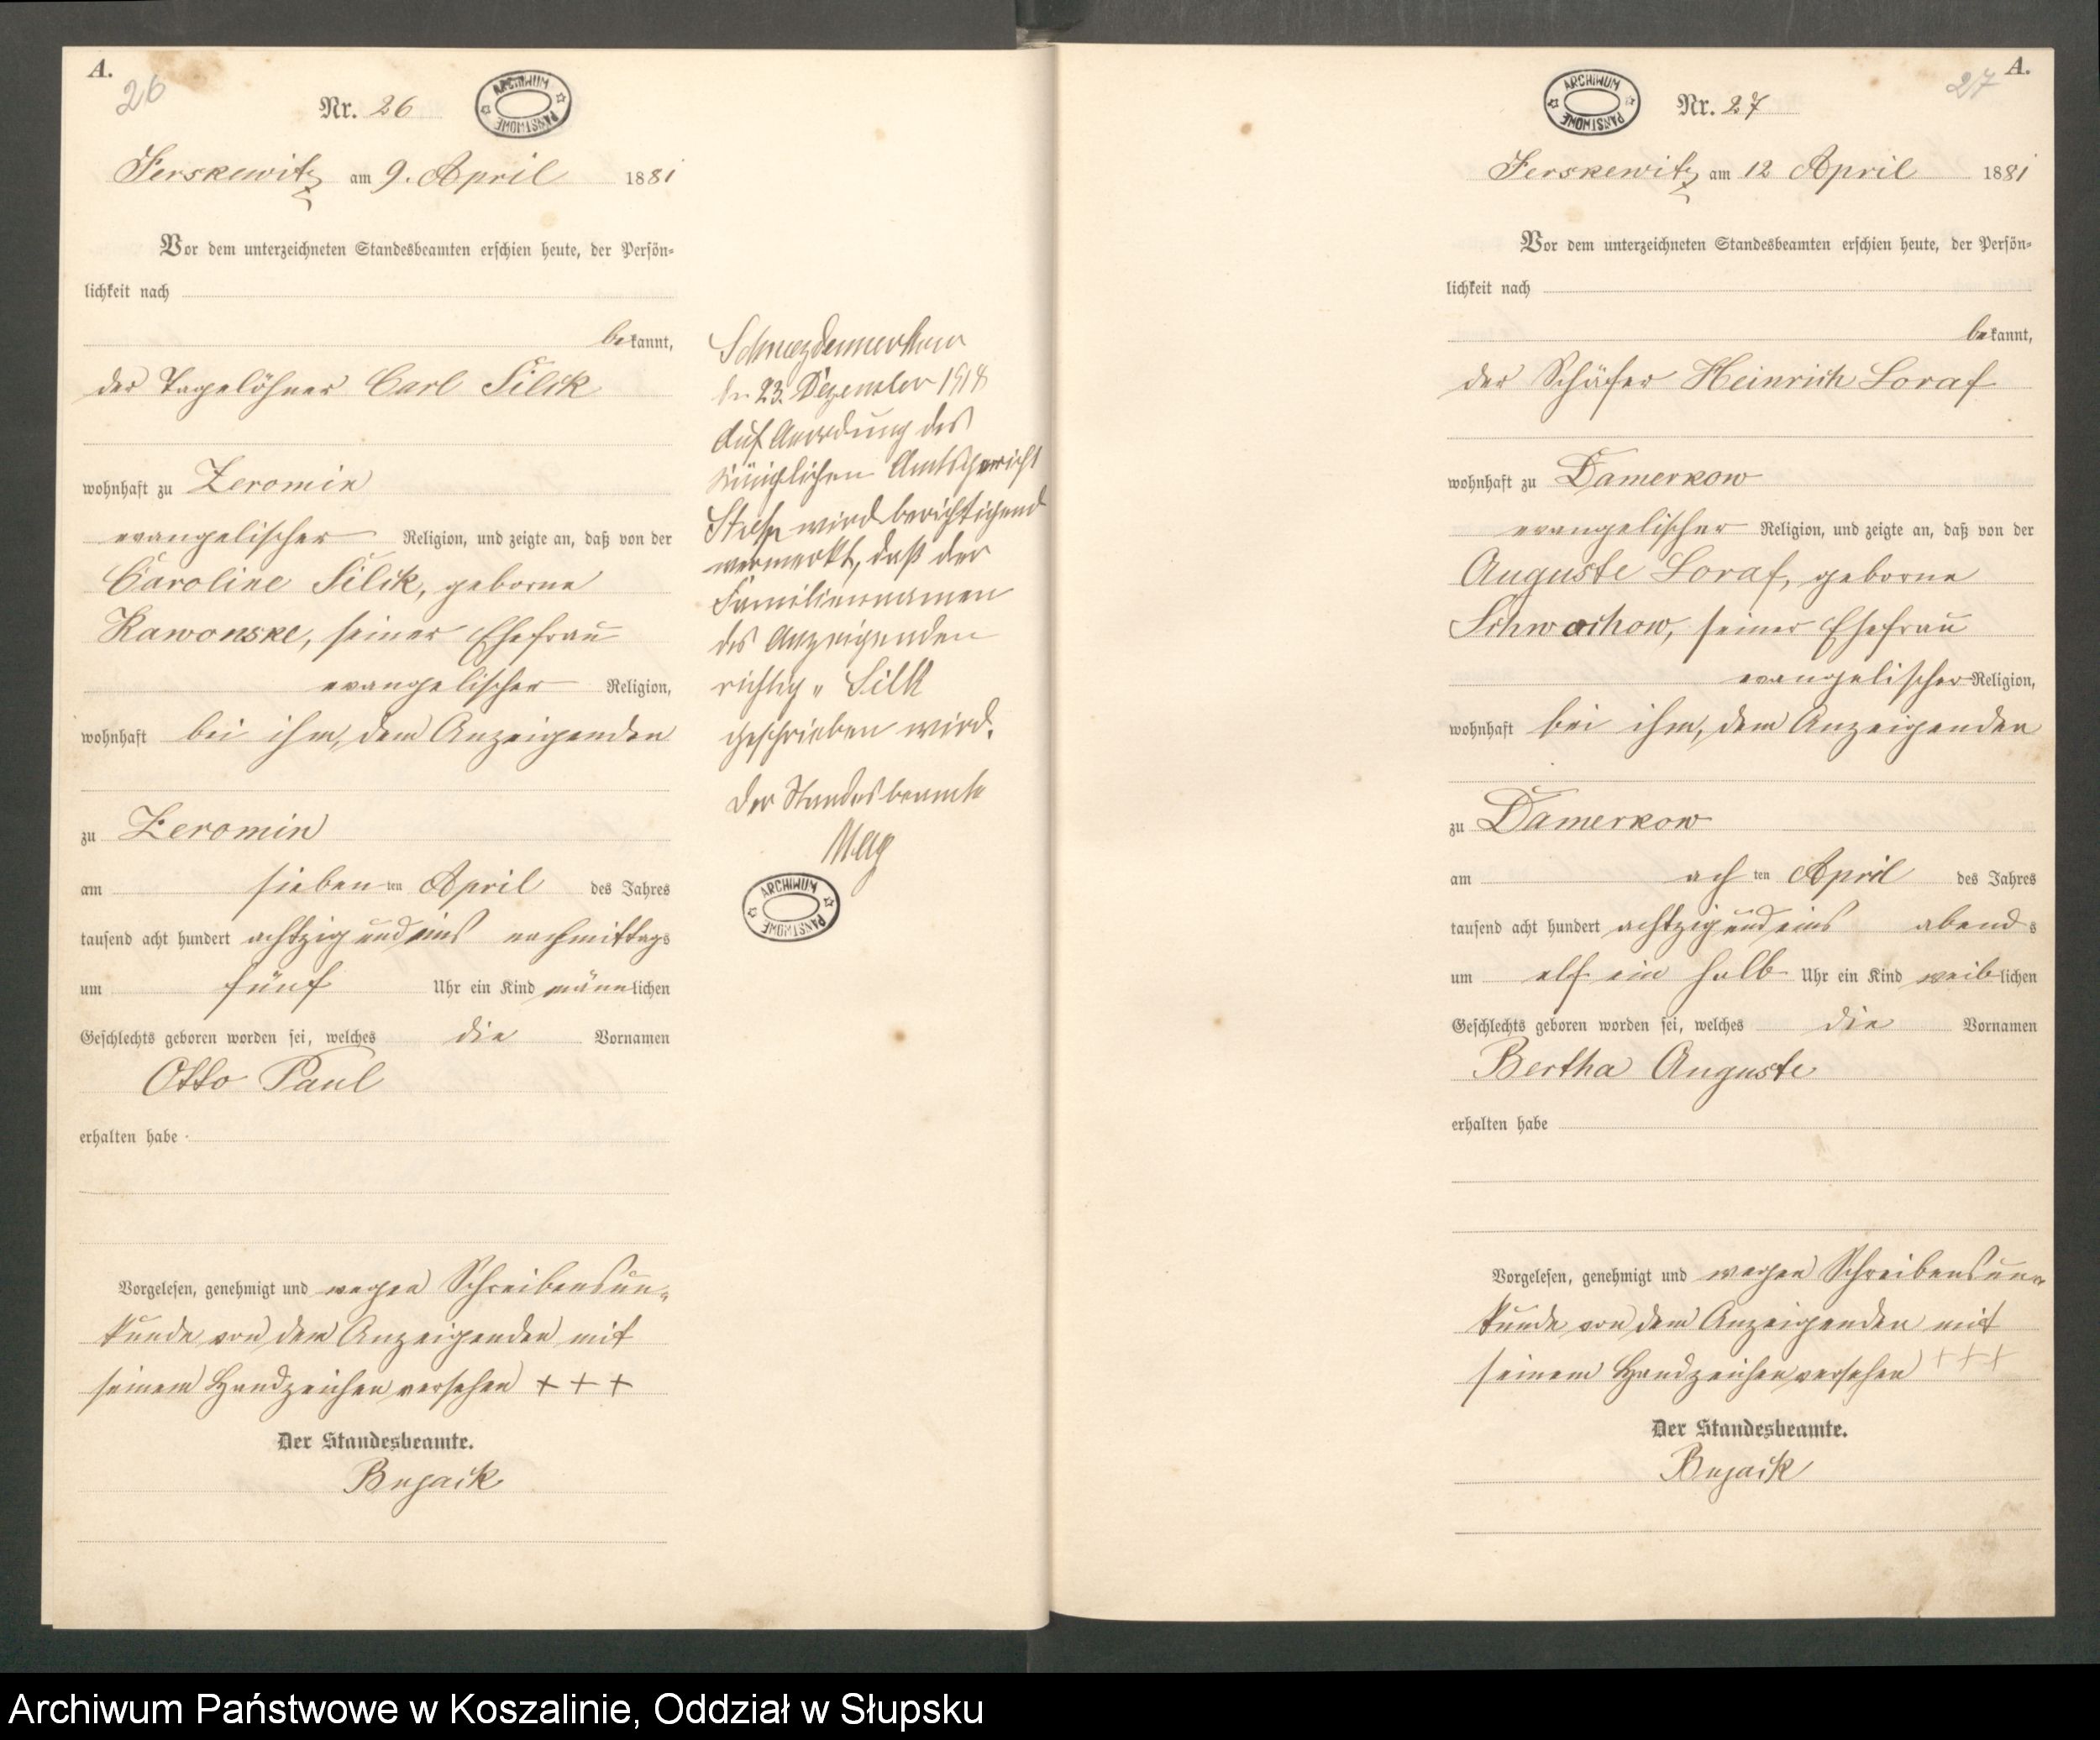 A.
26
Nr. 26
ARCHIWUM PAŃSTWOWE
Jerskewitz am 9. April 1881
Vor dem unterzeichneten Standesbeamten erschien heute, der Persön-
lichkeit nach
bekannt,
der Tagelöhner Carl Silik
wohnhaft zu Zeromin
evangelischer Religion, und zeigte an, daß von der
Caroline Silik, geborne
Kawonske, seiner Ehefrau
evangelischer Religion,
wohnhaft bei ihm, dem Anzeigenden
zu Zeromin
am siebenten April des Jahres
tausend acht hundert achtzig und eins nachmittags
um fünf Uhr ein Kind männlichen
Geschlechts geboren worden sei, welches die Vornamen
Otto Paul
erhalten habe
Vorgelesen, genehmigt und wegen Schreibensun-
kunde von dem Anzeigenden mit
seinem Handzeichen versehen + + +
Der Standesbeamte.
Bujack
den 23. Dezember 1918
Auf Anordnung des
Königlichen Amtsgericht
Stolp wird berichtigend
vermerkt, daß der
Familiennamen
des Anzeigenden
richtig „ Silk
geschrieben wird.
Der Standesbeamte
ARCHIWUM PAŃSTWOWE
A.
27
ARCHIWUM PAŃSTWOWE
Nr. 27
Jerskewitz am 12 April 1881
Vor dem unterzeichneten Standesbeamten erschien heute, der Persön-
lichkeit nach
bekannt,
der Schäfer Heinrich Loraf
wohnhaft zu Damerkow
evangelischer Religion, und zeigte an, daß von der
Auguste Loraf, geborne
Schwochow, seiner Ehefrau
evangelischer Religion,
wohnhaft bei ihm, dem Anzeigenden
zu Damerkow
am achten April des Jahres
tausend acht hundert achtzig und eins abends
um elf ein halb Uhr ein Kind weiblichen
Geschlechts geboren worden sei, welches die Vornamen
Bertha Auguste
erhalten habe
Vorgelesen, genehmigt und wegen Schreibensun-
kunde von dem Anzeigenden mit
seinem Handzeichen versehen + + +
Der Standesbeamte.
Bujack
Archiwum Państwowe w Koszalinie, Oddział w Słupsku